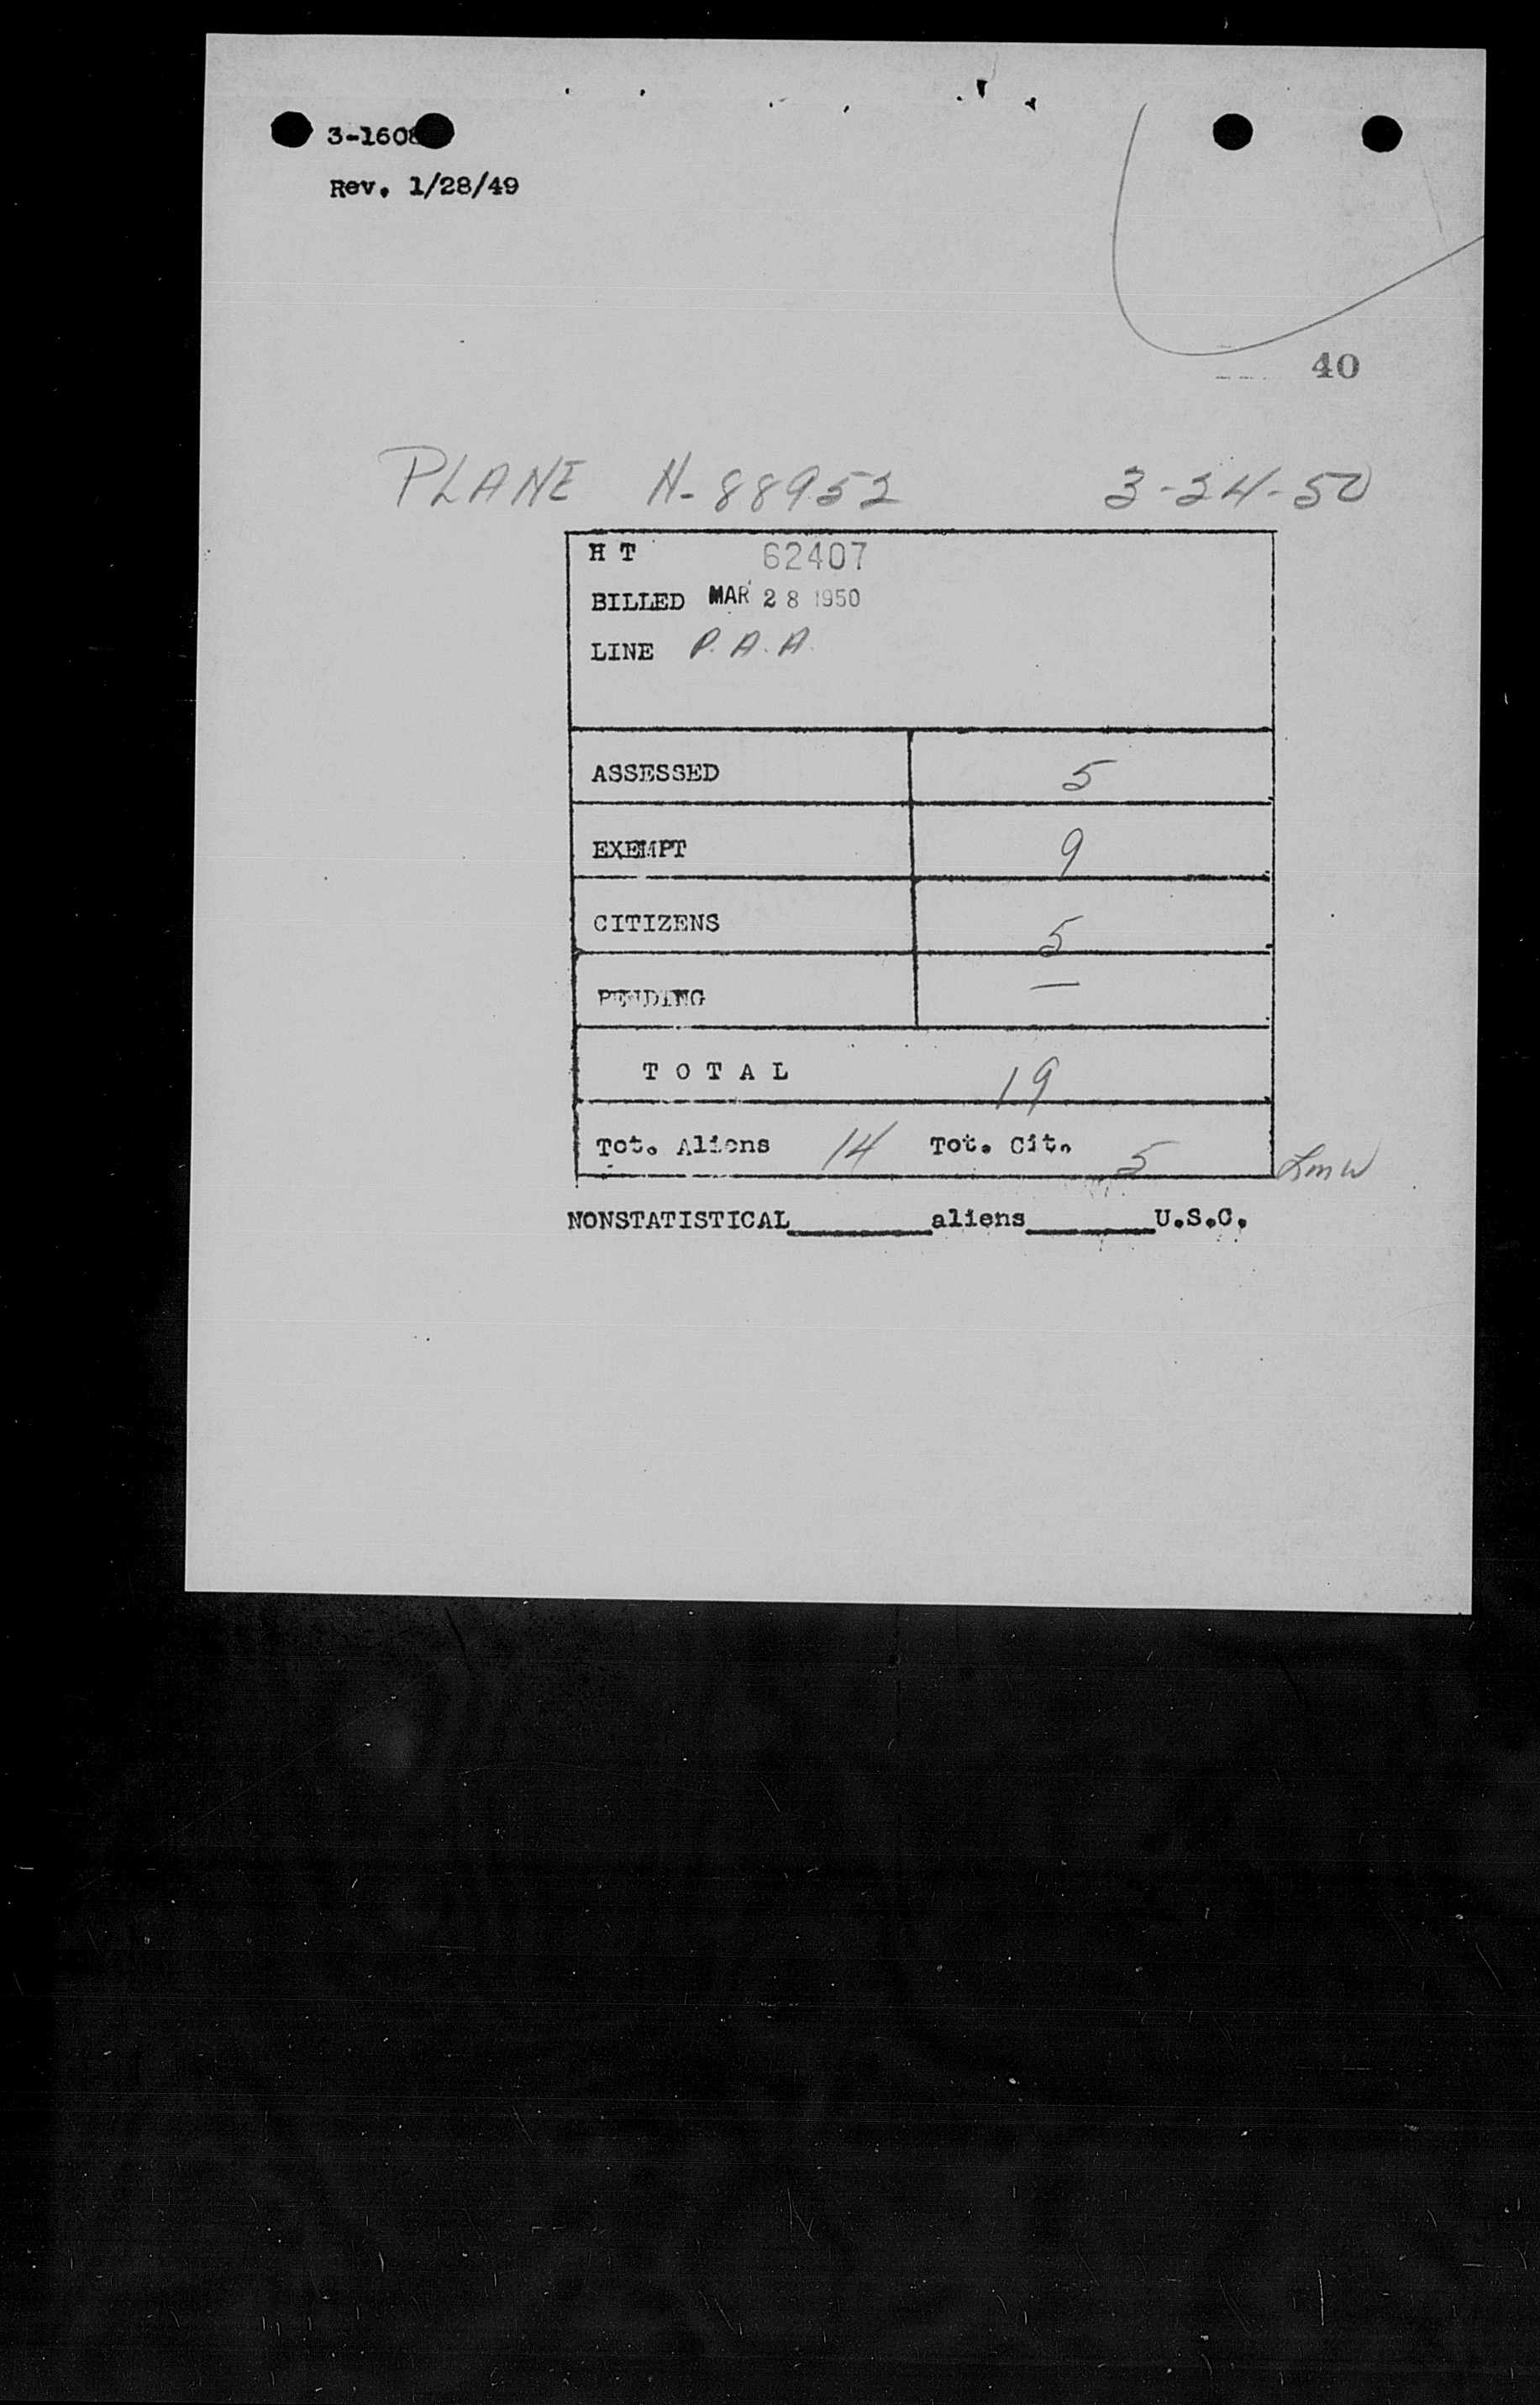 3-1608
Rev. 1/28/49
40
PLANE N-88952 3-24-50
H T 62407
BILLED MAR 28 1950
LINE P.A.A.
ASSESSED 5
EXEMPT 9
CITIZENS 5
PENDING —
TOTAL 19
Tot. Aliens 14 Tot. Cit. 5 Lmw
NONSTATISTICAL________aliens________U.S.C.